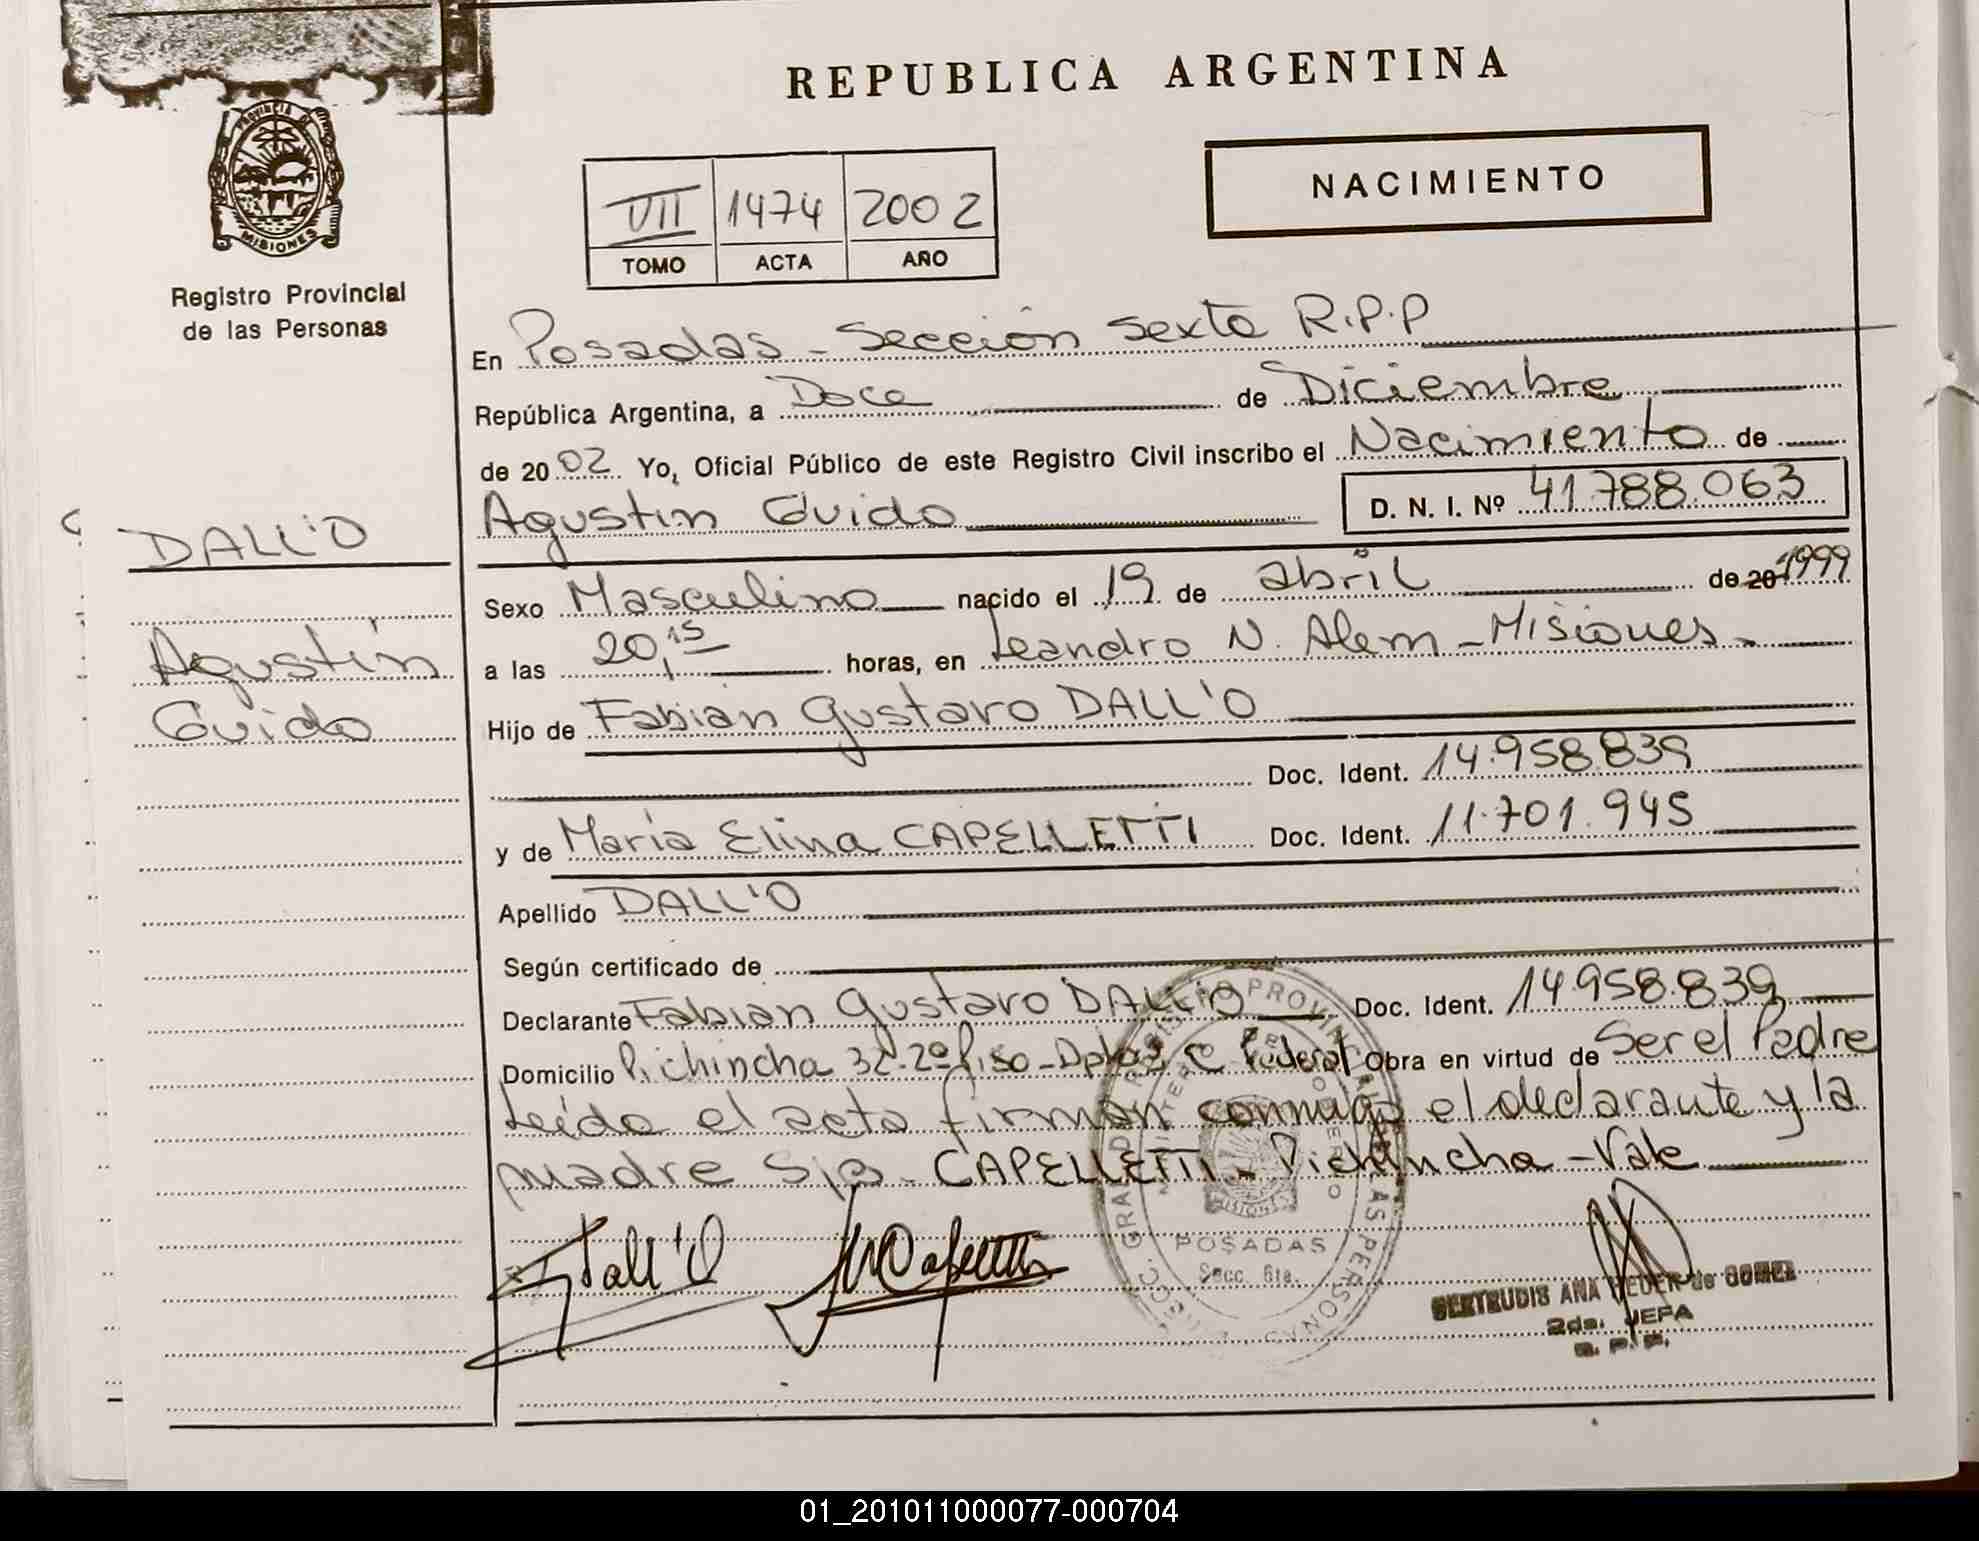 REPUBLICA ARGENTINA
PROVINCIA DE
MISIONES
Registro Provincial
de las Personas
NACIMIENTO
VII 1474 2002
TOMO ACTA AÑO
En Posadas - Sección Sexta R.P.P
República Argentina, a Doce de Diciembre
de 2002 Yo, Oficial Público de este Registro Civil inscribo el Nacimiento de
Agustin Guido D. N. I. Nº 41.788.063
DALL'O
Agustin
Guido
Sexo Masculino nacido el 19 de abril de 20 1999
a las 20,15 horas, en Leandro N. Alem - Misiones -
Hijo de Fabian Gustavo DALL'O
Doc. Ident. 14.958.839
y de Maria Elina CAPELLETTI Doc. Ident. 11.701.945
Apellido DALL'O
Según certificado de
Declarante Fabian Gustavo DALL'O Doc. Ident. 14.958.839
Domicilio Pichincha 32-2º Piso - Dpto C Federal Obra en virtud de Ser el Padre
Leída el acta firman conmigo el declarante y la
madre S/a - CAPELLETTI - Pichincha - Vale
Dall'O MCapelletti
POSADAS
Secc. 6ta.
GERTRUDIS ANA de GOMEZ
2da. JEFA
R. P. P.
01_201011000077-000704